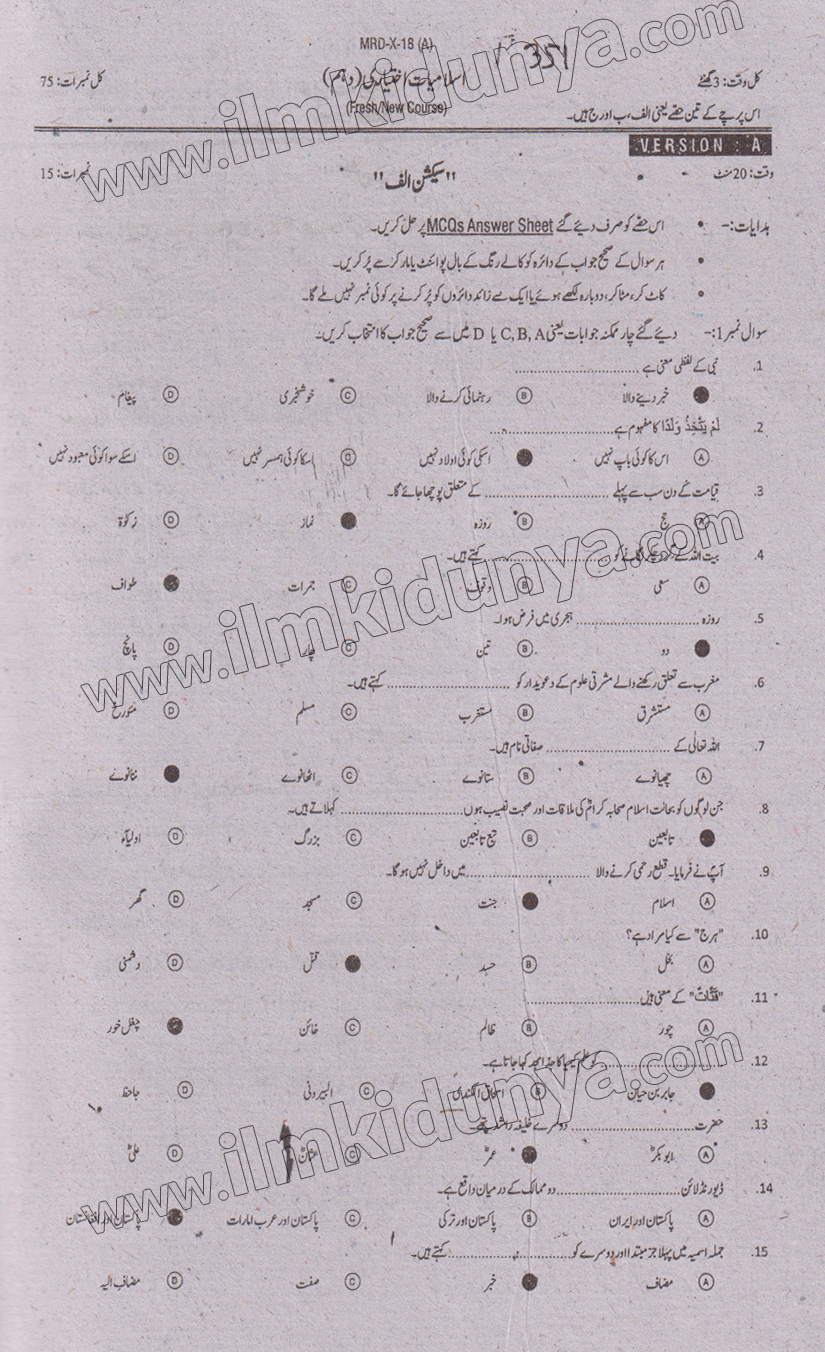 MRD-X-18 (A)
351
کل وقت: 3 گھنٹے
اسلامیات اختیاری (دہم)
کل نمبرات: 75
(Fresh/New Course)
اس پرچے کے تین حصے یعنی الف، ب اور ج ہیں۔
VERSION : A
وقت: 20 منٹ
"سیکشن الف"
نمبرات: 15
ہدایات:-
• اس حصے کو صرف دیئے گئے MCQs Answer Sheet پر حل کریں۔
• ہر سوال کے صحیح جواب کے دائرہ کو کالے رنگ کے بال پوائنٹ یا مارکر سے پُر کریں۔
• کاٹ کر، مٹا کر، دوبارہ لکھے ہوئے یا ایک سے زائد دائروں کو پُر کرنے پر کوئی نمبر نہیں ملے گا۔
سوال نمبر 1:- دیئے گئے چار ممکنہ جوابات یعنی C, B, A یا D میں سے صحیح جواب کا انتخاب کریں۔
1. نبی کے لفظی معنی ہے ........................
خبر دینے والا B رہنمائی کرنے والا C خوشخبری D پیغام
2. لَمْ يَتَّخِذْ وَلَدًا کا مفہوم ہے ........................
A اس کا کوئی باپ نہیں اسکی کوئی اولاد نہیں C اسکا کوئی ہمسر نہیں D اسکے سوا کوئی معبود نہیں
3. قیامت کے دن سب سے پہلے ........................ کے متعلق پوچھا جائے گا۔
A حج B روزہ نماز D زکوٰۃ
4. بیت اللہ کے گرد چکر لگانے کو ........................ کہتے ہیں۔
A سعی B وقوف C جمرات طواف
5. روزہ ........................ ہجری میں فرض ہوا۔
دو B تین C چار D پانچ
6. مغرب سے تعلق رکھنے والے مشرقی علوم کے دعویدار کو ........................ کہتے ہیں۔
A مستشرق B مستغرب C مسلم D مورخ
7. اللہ تعالٰی کے ........................ صفاتی نام ہیں۔
A چھیانوے B ستانوے C اٹھانوے ننانوے
8. جن لوگوں کو بحالت اسلام صحابہ کرامؓ کی ملاقات اور صحبت نصیب ہوں ........................ کہلاتے ہیں۔
تابعین B تبع تابعین C بزرگ D اولیاء
9. آپؐ نے فرمایا۔ قطع رحمی کرنے والا ........................ میں داخل نہیں ہوگا۔
A اسلام جنت C مسجد D گھر
10. "ہرج" سے کیا مراد ہے؟
A بخل B حسد قتل D دشمنی
11. "قَتَّات" کے معنی ہیں ........................
A چور B ظالم C خائن چغل خور
12. ........................ کو علم کیمیا کا جد امجد کہا جاتا ہے۔
جابر بن حیان B اسحاق الکندی C البیرونی D جاحظ
13. حضرت ........................ دوسرے خلیفہ راشد تھے۔
A ابوبکرؓ عمرؓ C عثمانؓ D علیؓ
14. ڈیورنڈ لائن ........................ دو ممالک کے درمیان واقع ہے۔
A پاکستان اور ایران B پاکستان اور ترکی C پاکستان اور عرب امارات پاکستان اور افغانستان
15. جملہ اسمیہ میں پہلا جز مبتدا اور دوسرے کو ........................ کہتے ہیں۔
A مضاف خبر C صفت D مضاف الیہ
www.ilmkidunya.com
www.ilmkidunya.com
www.ilmkidunya.com